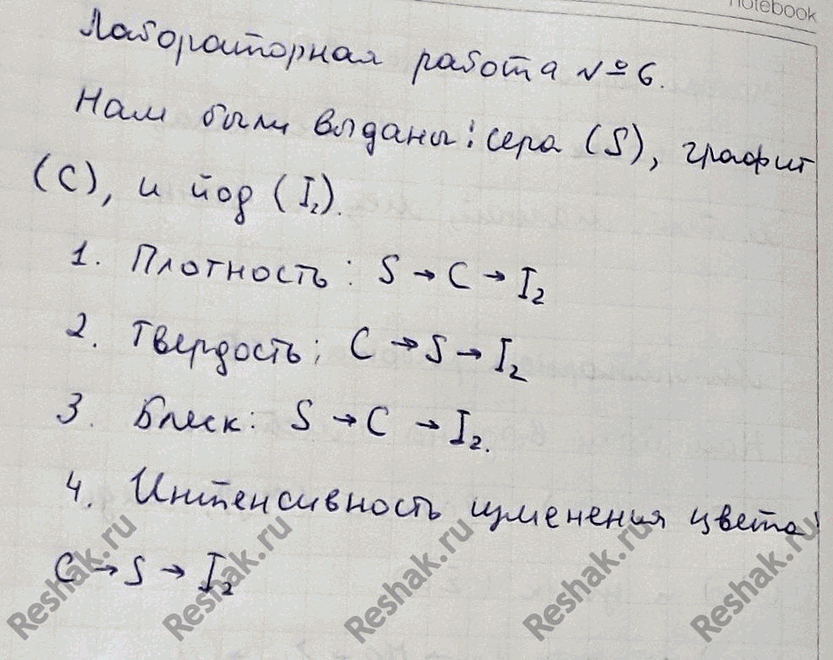 notebook
Лабораторная работа №6.
Нам были выданы: сера (S), графит
(C), и йод (I₂).
1. Плотность: S → C → I₂
2. Твердость: C → S → I₂
3. Блеск: S → C → I₂.
4. Интенсивность изменения цвета:
C → S → I₂
Reshak.ru Reshak.ru Reshak.ru Reshak.ru Reshak.ru